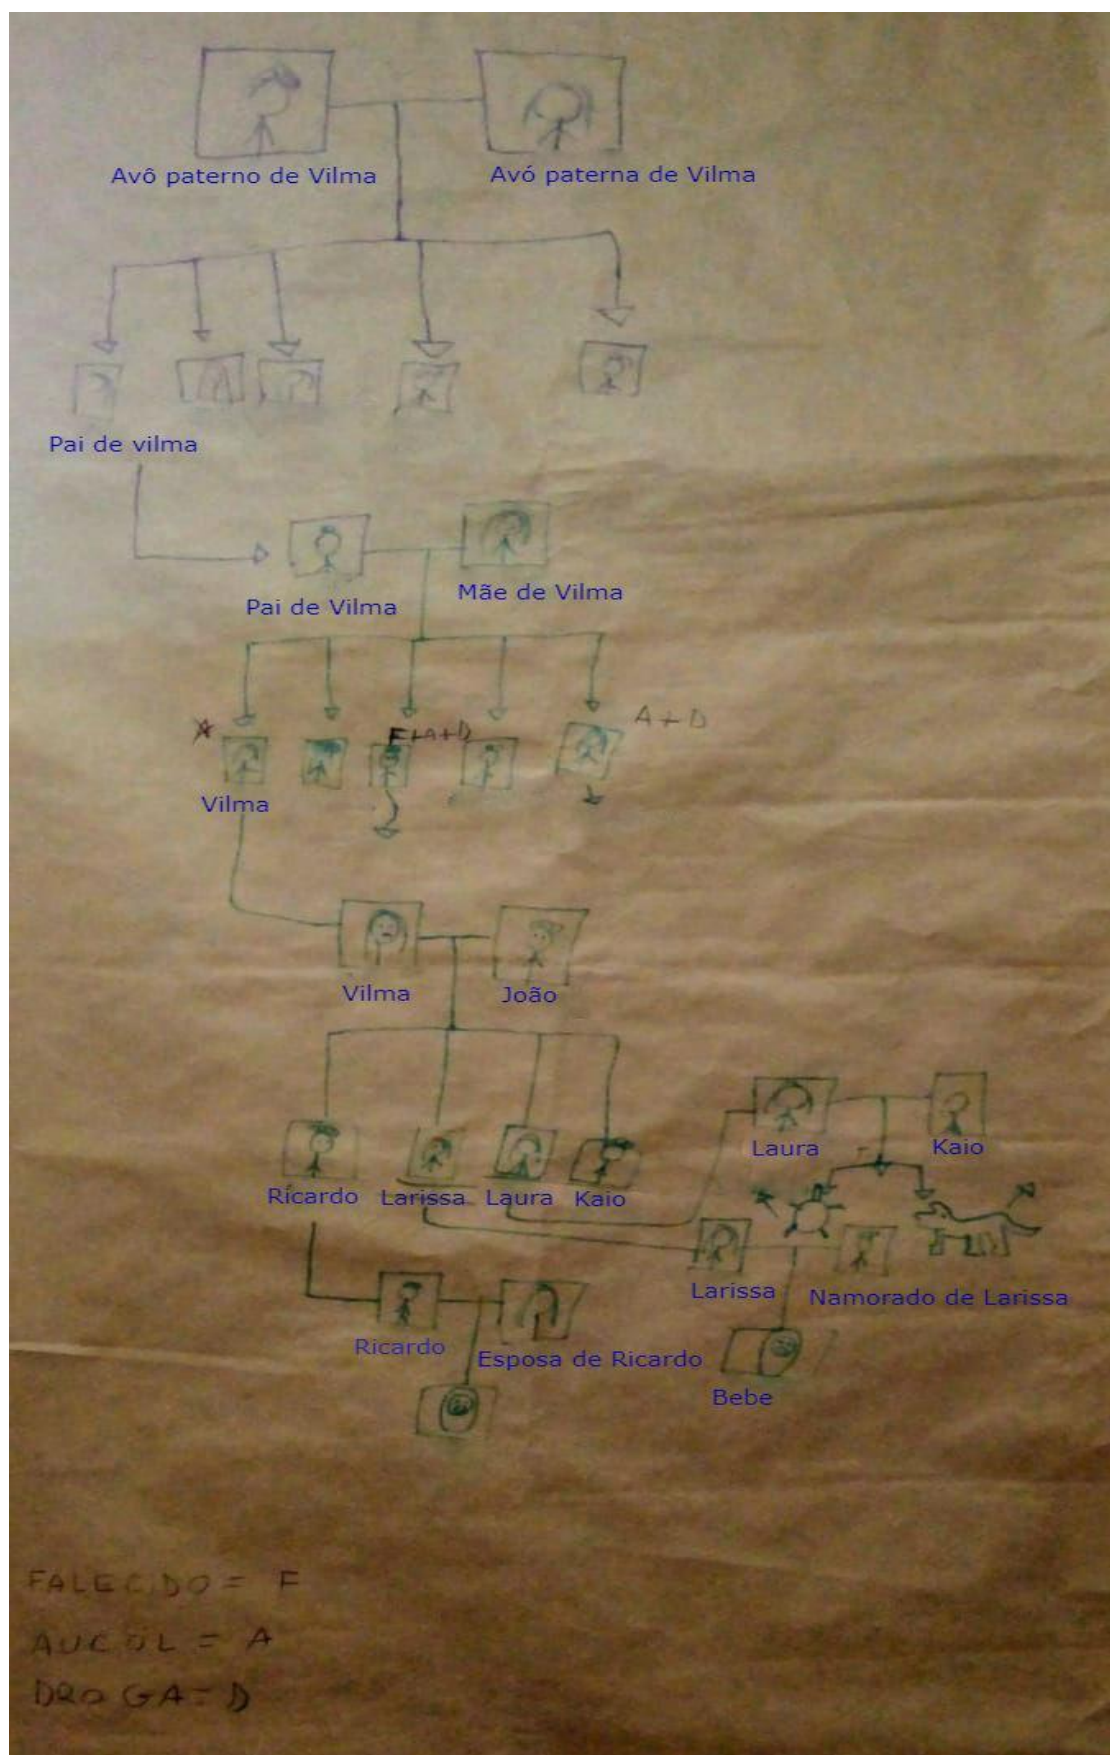 Avô paterno de Vilma
Avó paterna de Vilma
Pai de vilma
Pai de Vilma
Mãe de Vilma
A
F+A+D
A+D
Vilma
Vilma
João
Ricardo
Larissa
Laura
Kaio
Laura
Kaio
Larissa
Namorado de Larissa
Ricardo
Esposa de Ricardo
Bebe
FALECIDO = F
AUCOOL = A
DROGA = D